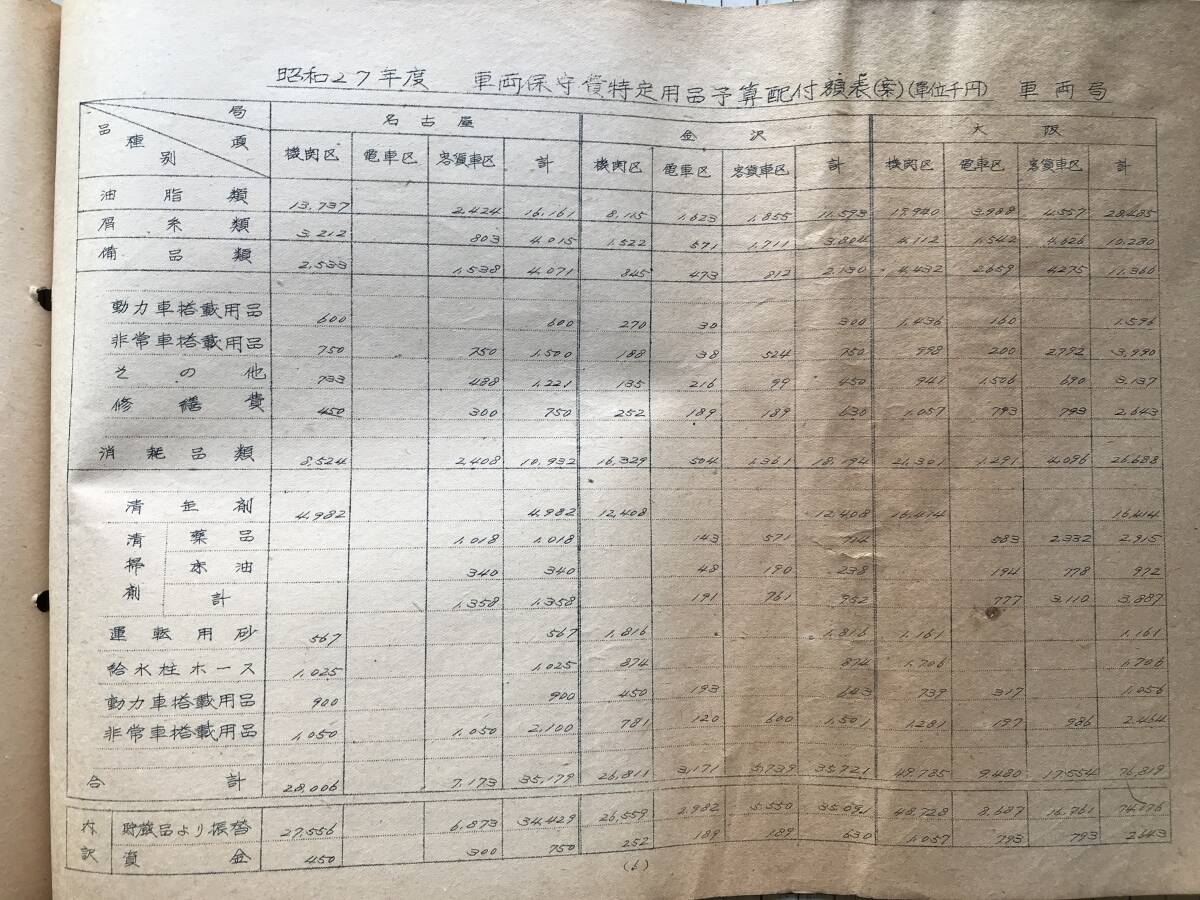 昭和27年度 車両保守費特定用品予算配付額表(案)(単位千円) 車両局
局 項 品種別 名古屋 金沢 大阪
機関区 電車区 客貨車区 計 機関区 電車区 客貨車区 計 機関区 電車区 客貨車区 計
油脂類 13,737 2,424 16,161 8,115 1,623 1,855 11,593 19,940 3,988 4,557 28,485
屑糸類 3,212 803 4,015 1,522 571 1,711 3,804 4,112 1,542 4,626 10,280
備品類 2,533 1,538 4,071 845 473 812 2,130 4,432 2,659 4,275 11,366
動力車搭載用品 600 600 270 30 300 1,436 160 1,596
非常車搭載用品 750 750 1,500 188 38 524 750 998 200 2,792 3,990
その他 733 488 1,221 135 216 99 450 941 1,506 690 3,137
修繕費 450 300 750 252 189 189 630 1,057 793 793 2,643
消耗品類 8,524 2,408 10,932 16,329 504 1,361 18,194 21,301 1,291 4,096 26,688
清缶剤 4,982 4,982 12,408 12,408 16,414 16,414
清掃剤 薬品 1,018 1,018 143 571 714 583 2,332 2,915
340 340 48 190 238 194 778 972
計 1,358 1,358 191 761 952 777 3,110 3,887
運転用砂 567 567 1,816 1,816 1,161 1,161
給水柱ホース 1,025 1,025 874 874 1,706 1,706
動力車搭載用品 900 900 450 193 643 739 317 1,056
非常車搭載用品 1,050 1,050 2,100 781 120 600 1,501 1,281 197 986 2,464
合計 28,006 7,173 35,179 26,811 3,171 5,739 35,721 49,785 9,480 17,554 76,819
内訳 貯蔵品より振替 27,556 6,873 34,429 26,559 2,982 5,550 35,091 48,728 8,687 16,761 74,176
資金 450 300 750 252 189 189 630 1,057 793 793 2,643
(6)